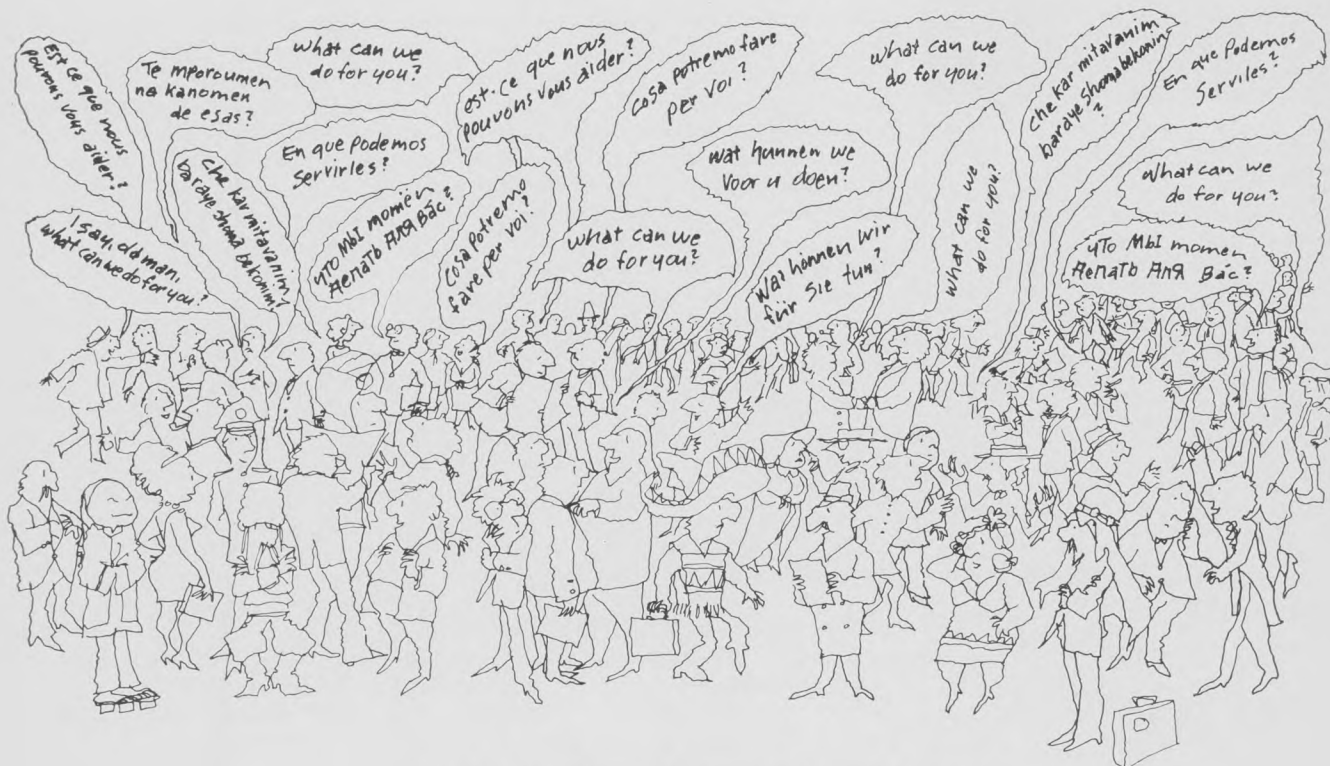 Est ce que nous
pouvons vous aider?
Te mporoumen
na kanomen
de esas?
What can we
do for you?
est-ce que nous
pouvons vous aider?
cosa potremo fare
per voi?
what can we
do for you?
Che kar mitavanim
baraye shoma bekonim
?
En que Podemos
Serviles?
I say, old man,
what can we do for you?
Che kar mitavanim
baraye shoma bekonim?
En que Podemos
servirles?
что мы момен
Делать для Вáс?
Cosa potremo
fare per voi?
What can we
do for you?
wat hunnen we
voor u doen?
Was hönnen wir
für Sie tun?
What can we
do for you?
What can we
do for you?
что мы момен
Делать для Вáс?